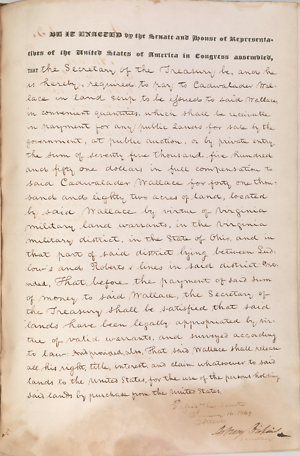 BE IT ENACTED by the Senate and House of Representa-
tives of the United States of America in Congress assembled,
THAT the Secretary of the Treasury be, and he
is hereby, required to pay to Cadwalader Wal-
lace in land scrip to be issued to said Wallace,
in convenient quantities, which shall be receivable
in payment for any public lands for sale by the
government, at public auction, or by private entry,
the sum of seventy five thousand, five hundred
and fifty one dollars in full compensation to
said Cadwalader Wallace for forty one thou-
sand and eighty two acres of land, located
by said Wallace by virtue of Virginia
military land warrants, in the Virginia
military district, in the State of Ohio, and in
that part of said district lying between Lud-
low's and Roberts' lines in said district Pro-
vided, That before the payment of said sum
of money to said Wallace, the Secretary of
the Treasury shall be satisfied that said
lands have been legally appropriated by vir-
tue of valid warrants, and surveys according
to law. And provided also, That said Wallace shall release
all his right, title, interest, and claim whatsoever to said
lands to the United States, for the use of the persons holding
said lands by purchase from the United States.